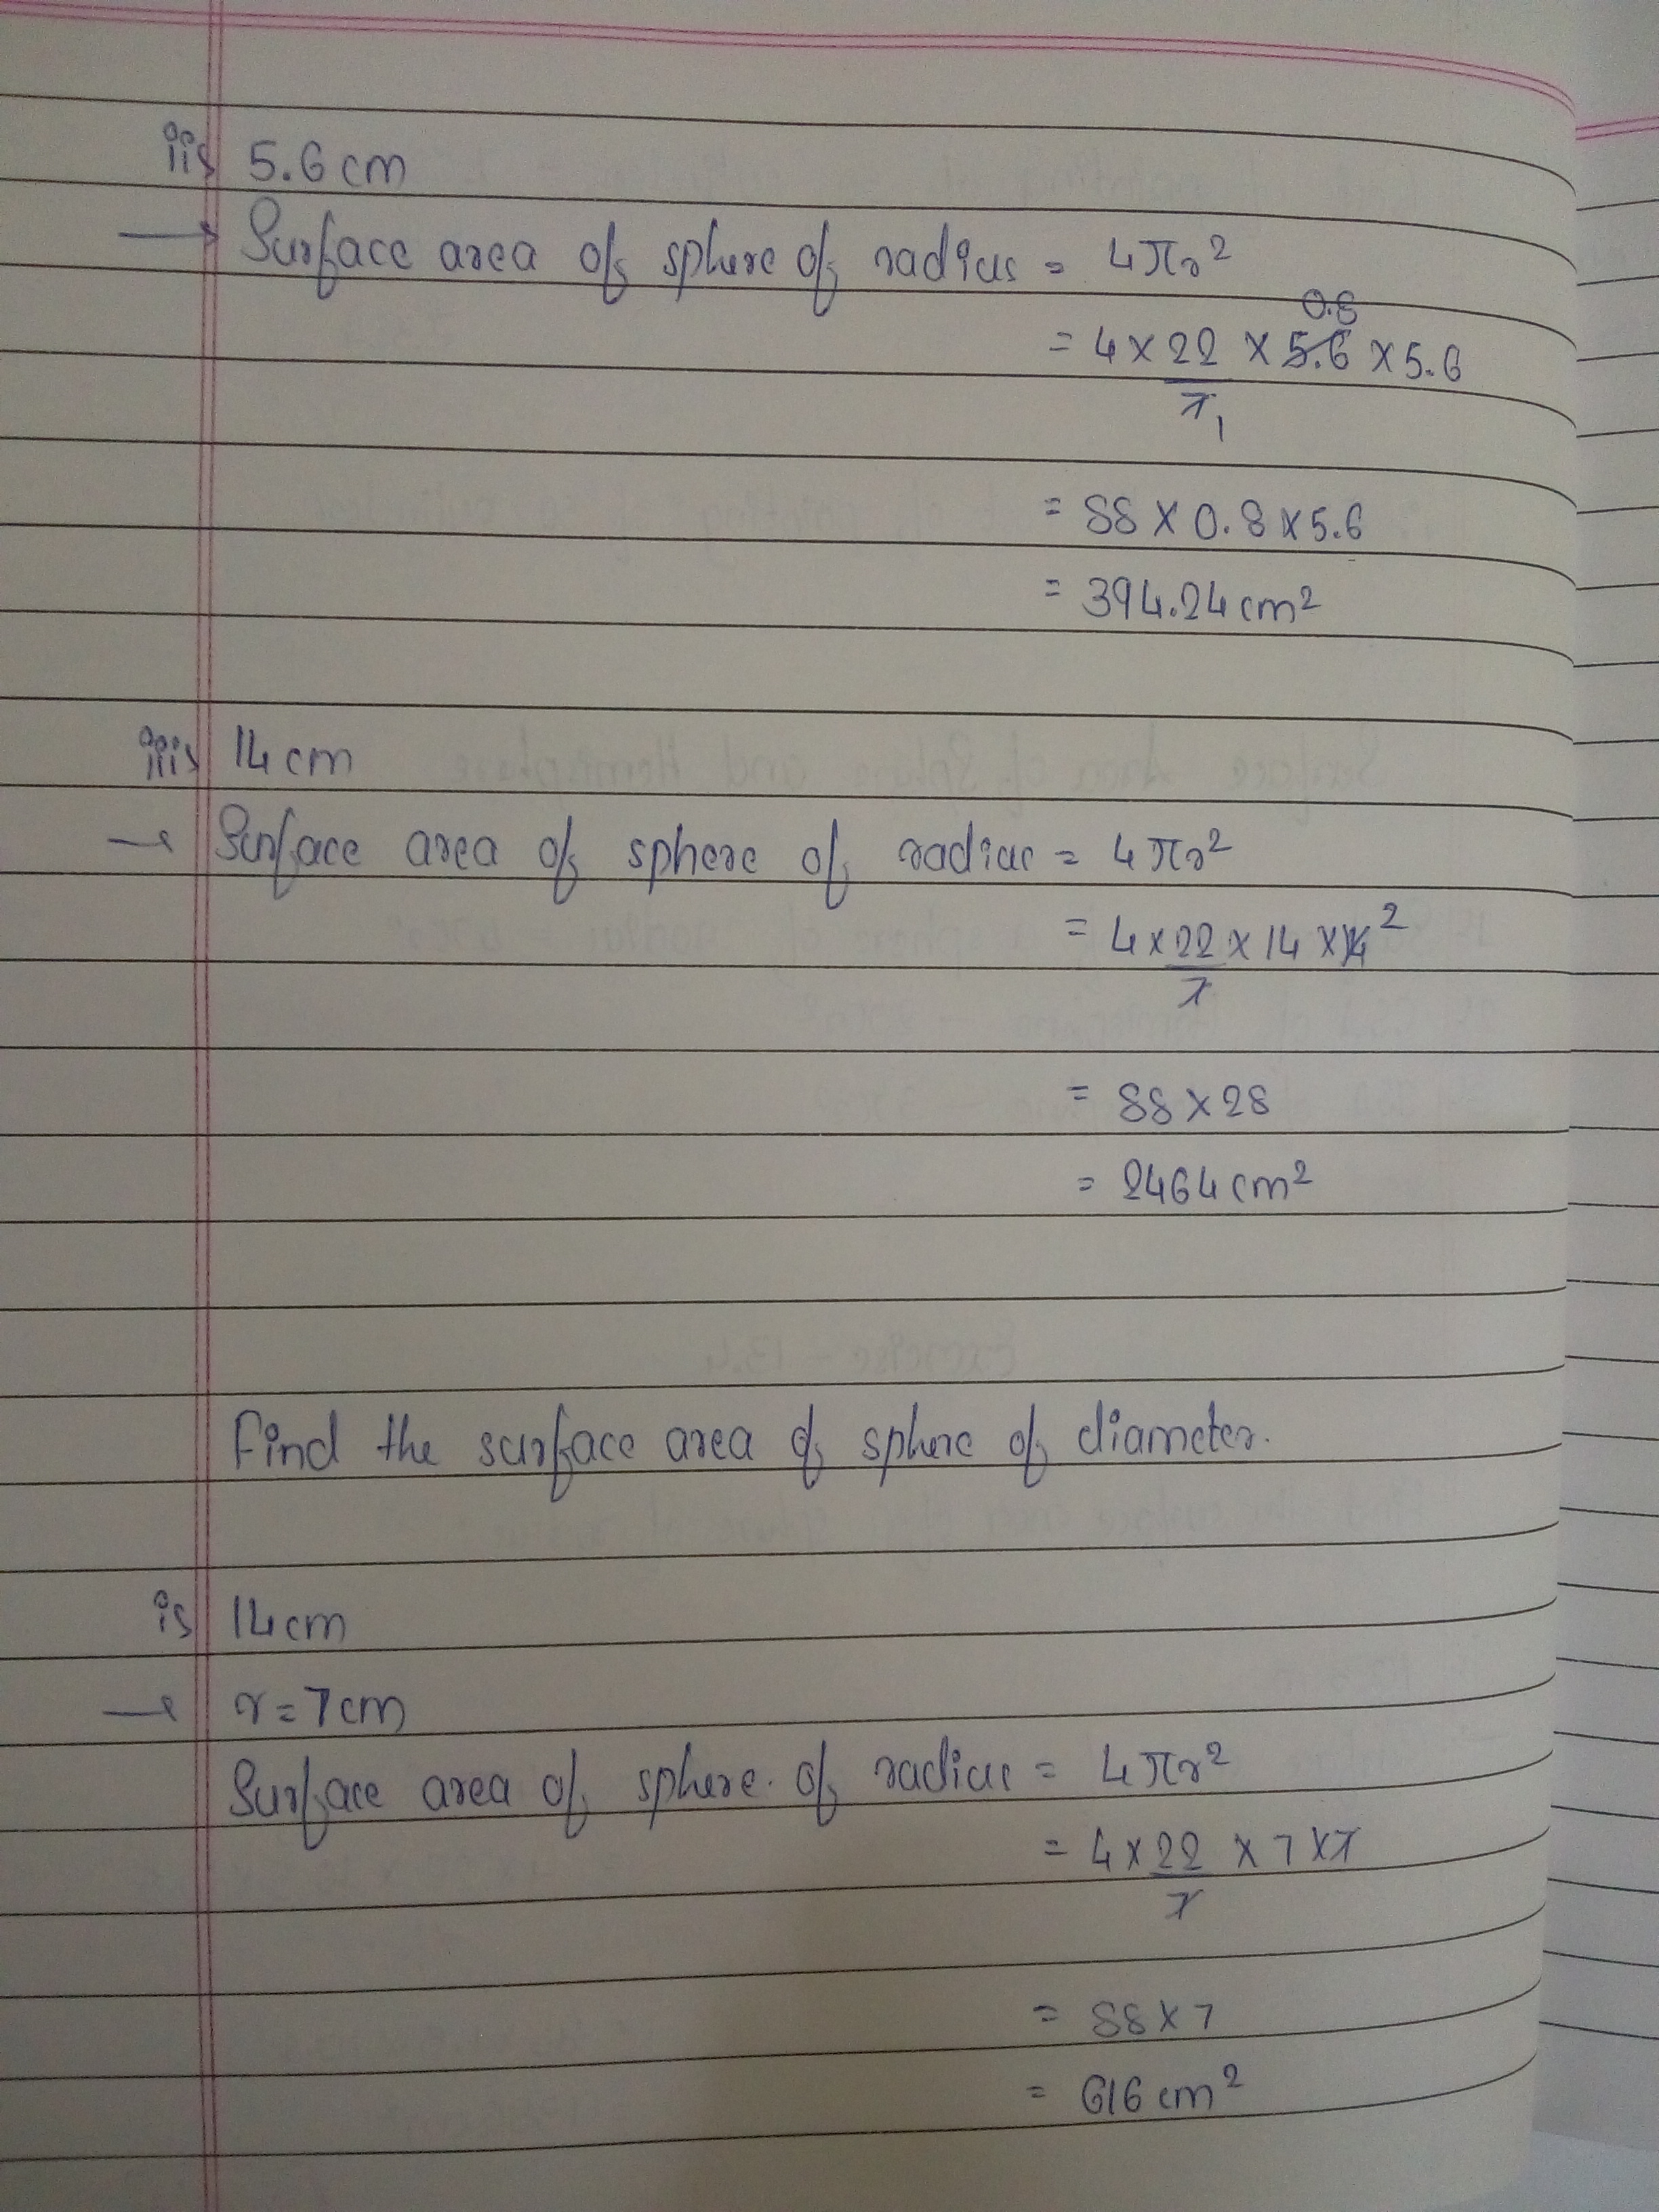 ii) 5.6 cm
→ Surface area of sphere of radius = 4πr²
0.8
= 4 × 22 × 5.6 × 5.6
7 1
= 88 × 0.8 × 5.6
= 394.24 cm²
iii) 14 cm
→ Surface area of sphere of radius = 4πr²
= 4 × 22 × 14 × 14 2
7
= 88 × 28
= 2464 cm²
Find the surface area of sphere of diameter.
i) 14 cm
→ r = 7 cm
Surface area of sphere of radius = 4πr²
= 4 × 22 × 7 × 7
7
= 88 × 7
= 616 cm²